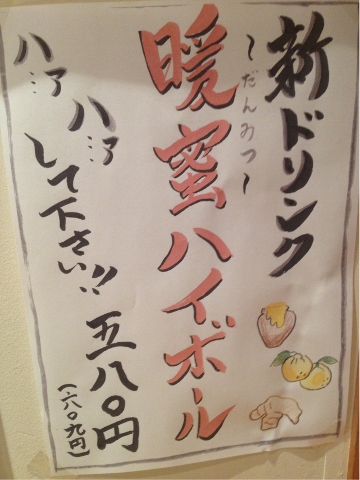 新ドリンク
～だんみつ～
暖蜜ハイボール
ハァ…
ハァ…
して下さい!!
五八〇円
(六〇九円)